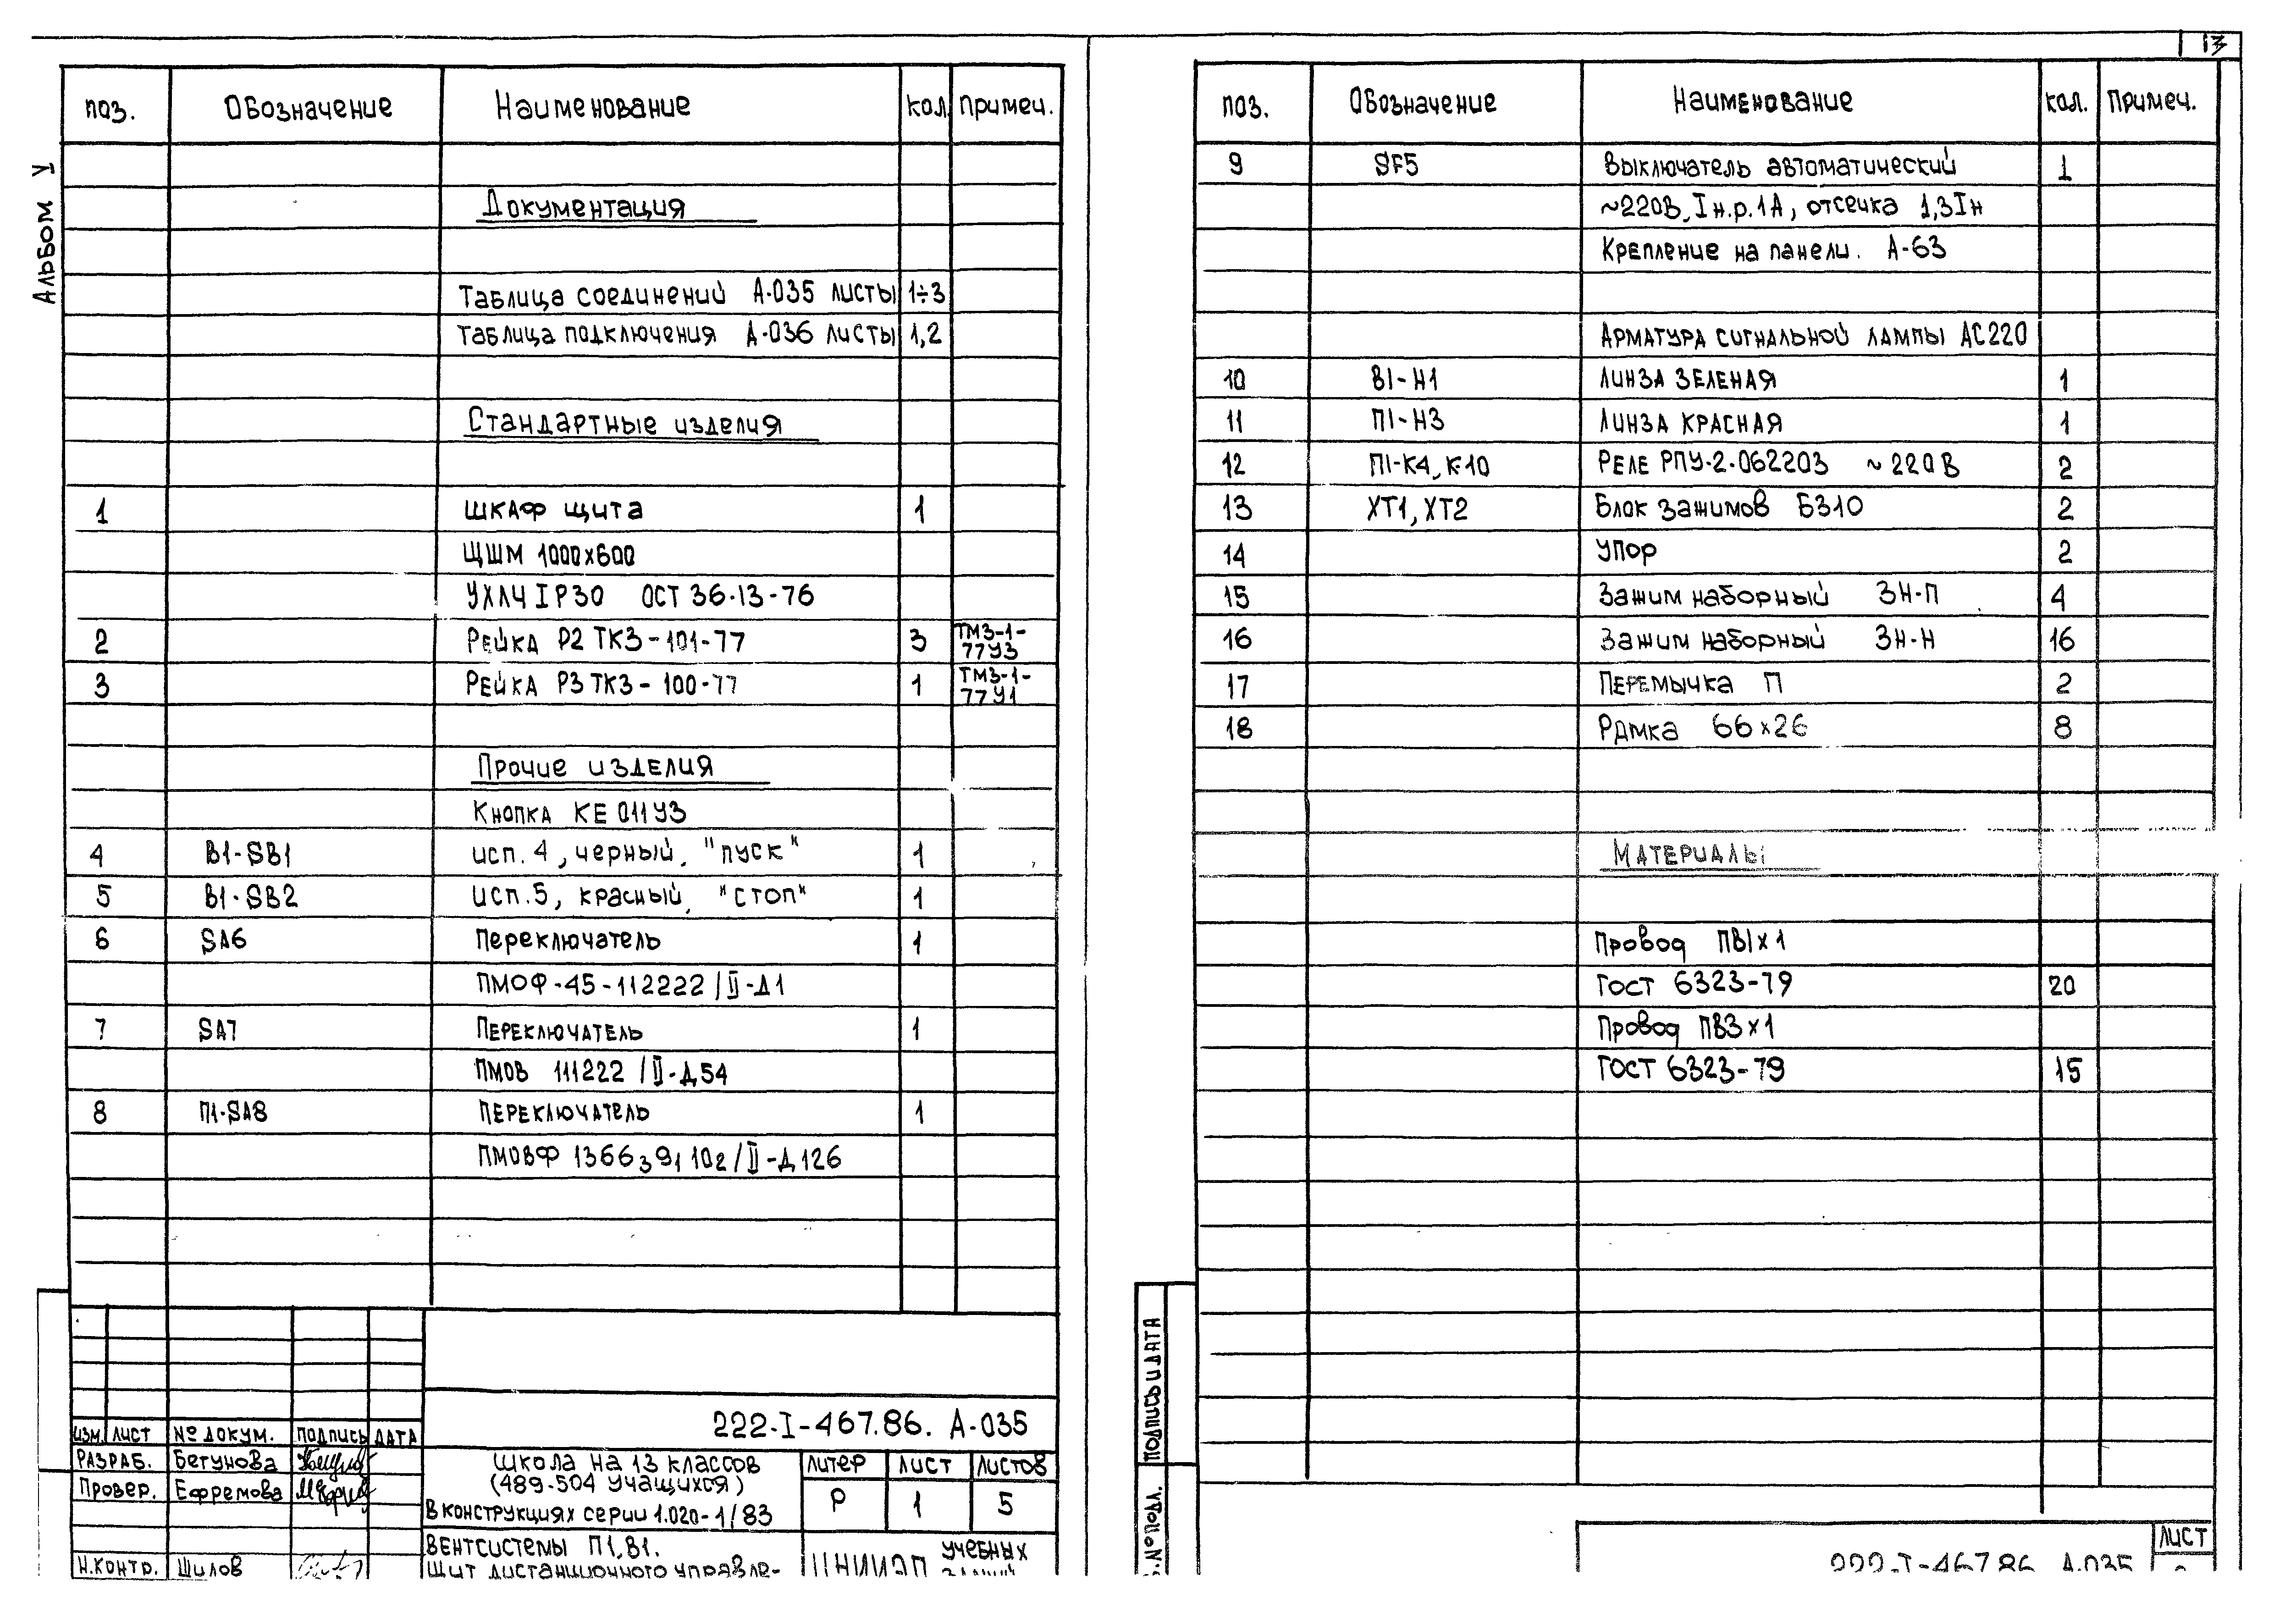 13
Альбом У
поз. Обозначение Наименование кол. Примеч.
Документация
Таблица соединений А-035 листы 1÷3
Таблица подключения А-036 листы 1,2
Стандартные изделия
1 Шкаф щита 1
ЩШМ 1000х600
УХЛ4 IP30 ОСТ 36.13-76
2 Рейка Р2 ТК3-101-77 3 ТМ3-1-
77У3
3 Рейка Р3 ТК3-100-77 1 ТМ3-1-
77У1
Прочие изделия
Кнопка КЕ 011У3
4 В1-SB1 исп. 4, черный, "пуск" 1
5 В1-SB2 исп. 5, красный, "стоп" 1
6 SA6 Переключатель 1
ПМОФ-45-112222/II-Д1
7 SA7 Переключатель 1
ПМОВ 111222/II-Д54
8 П1-SA8 Переключатель 1
ПМОВФ 1366391102/II-Д126
222-I-467.86. А-035
Изм. Лист № докум. Подпись Дата
Разраб. Бегунова
Провер. Ефремова
Н.контр. Шилов
Школа на 13 классов
(489-504 учащихся)
в конструкциях серии 1.020-1/83
Литер Лист Листов
Р 1 5
Вентсистемы П1, В1.
Щит дистанционного управле-
ЦНИИЭП учебных
зданий
поз. Обозначение Наименование кол. Примеч.
9 SF5 Выключатель автоматический 1
~220В, Iн.р.1А, отсечка 1,3Iн
Крепление на панели. А-63
Арматура сигнальной лампы АС220
10 В1-Н1 Линза зеленая 1
11 П1-Н3 Линза красная 1
12 П1-К4, К10 Реле РПУ-2-062203 ~220В 2
13 ХТ1, ХТ2 Блок зажимов БЗ10 2
14 Упор 2
15 Зажим наборный ЗН-П 4
16 Зажим наборный ЗН-Н 16
17 Перемычка П 2
18 Рамка 66х26 8
Материалы
Провод ПВ1х1
ГОСТ 6323-79 20
Провод ПВ3х1
ГОСТ 6323-79 15
Подпись и дата
№ подл.
222-I-467.86 А-035
Лист